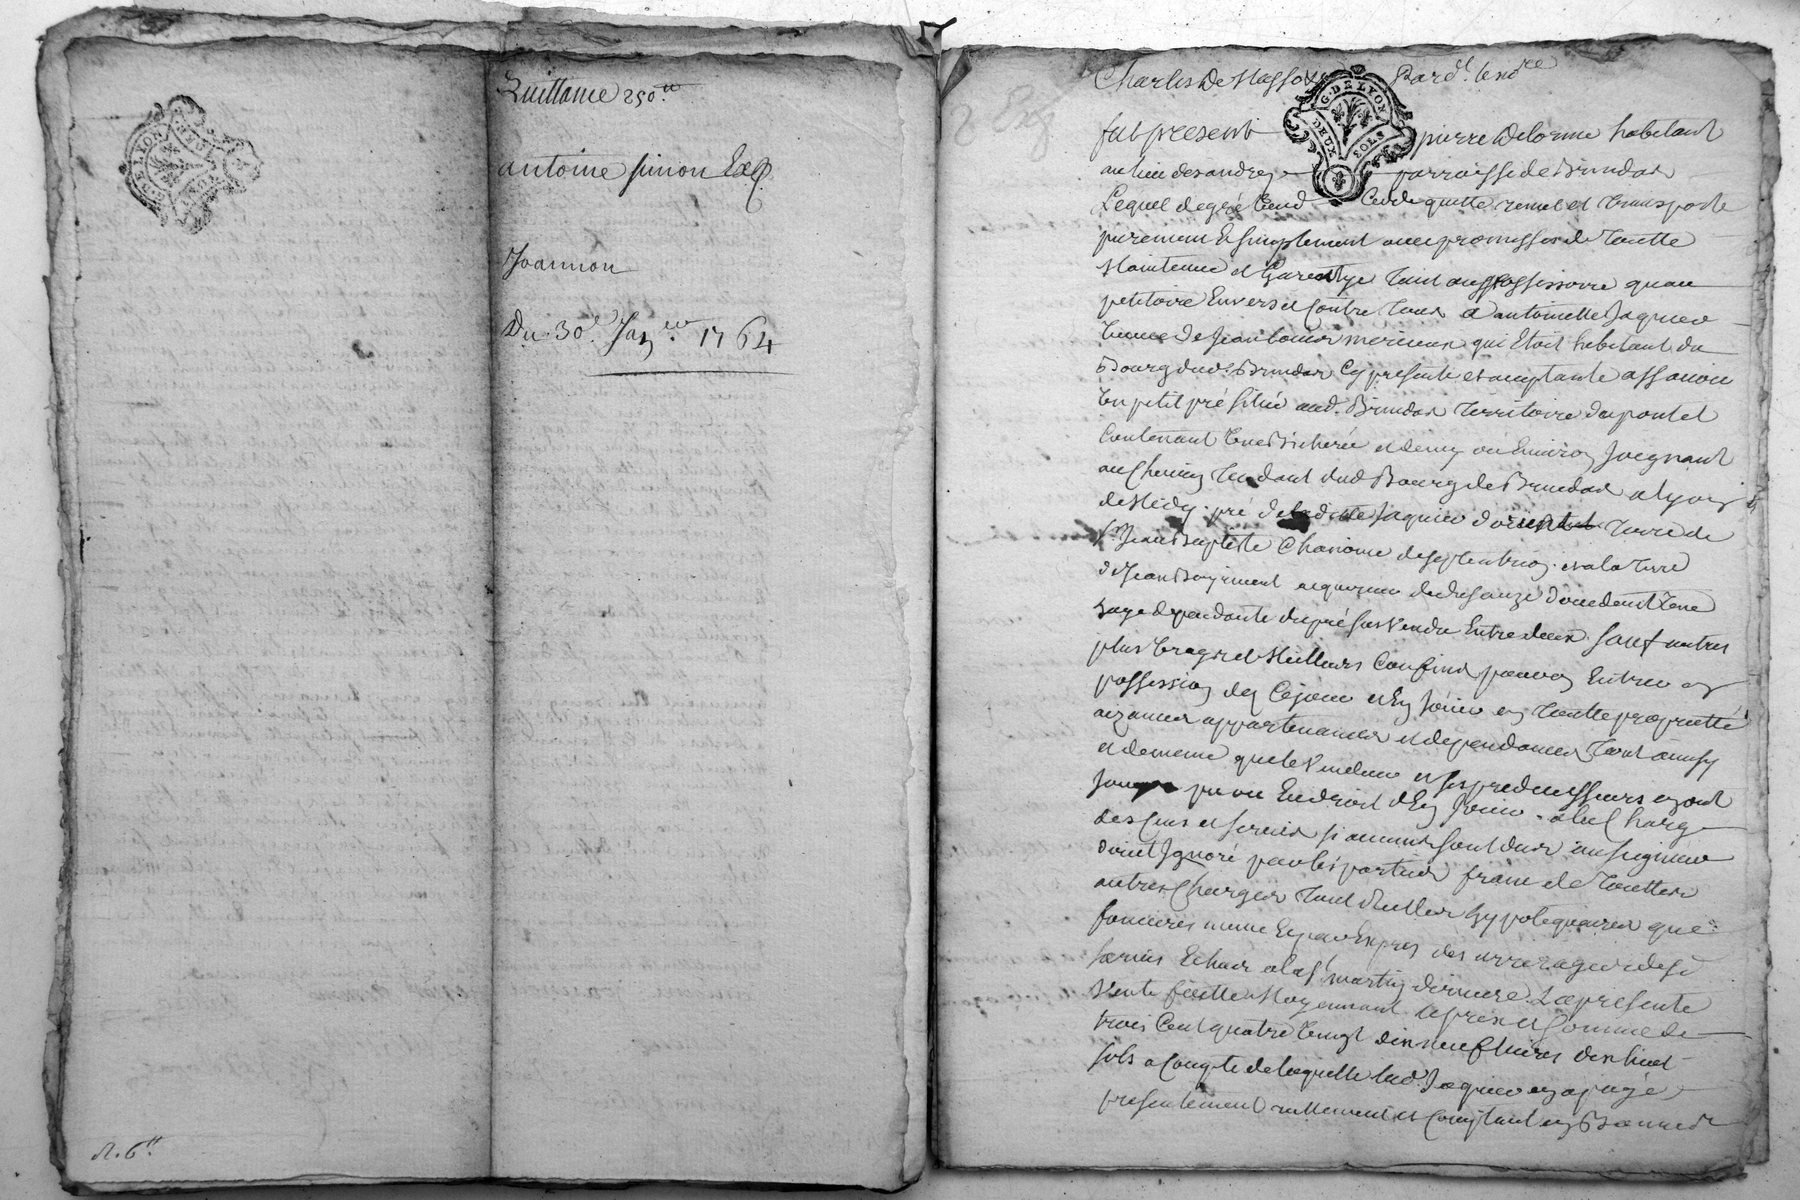 Quittance 250.tt
antoine simon Exp.
Joannon
Du 30e Janer 1764
R. 6tt
Charles De Masso Pard.t lesd.re
G. DE LYON
DEUX SOLS
fut present pierre Delorme habitant
au lieu desandre parroisse de Brindas
Lequel degré vend Cedde quitte remet et transporte
purement Et simplement avec promesses de Toutte
Maintenue et Garentye tant au possessoire quau
petitoire Envers et Contre Tous a antoinette Jaquier
veuve de Jean louis mercieux qui Etoit habitant du
Bourg dud. Brindas Cy presente et acceptante assavoir
un petit pré situé aud. Brindas territoire du pontet
Contenant une Bicherée et demy ou Environ Joignant
au Chemin tendant dud Bourg de Brindas a lyon
de Midy. pré de ladite Jaquier dorient terre de
sr. Jean Baptiste Chanoine deseptentrion. et a la terre
de Jean acquereur doccident Une
haye dependante du pré sus vendu Entre deux. sauf autres
plus vrays et Meilleurs Confins pour en Entrer en
possession des Cejour et En Jouir en Toutte proprietté
aizances appartenances et dependances tout ainsy
et de meme que le vendeur et ses predecesseurs en ont
Jouy pu ou En droit dEn Jouir. a la Charge
des Cens et servis si aucuns sont dus au seigneur
direct Ignoré par les parties franc de Touttes
autres Charges tant Reelles hypotequaires que
foncieres meme Et par Exprés des arrerages desd.
servis Echus a la st. martin derniere. La presente
vente faitte Moyennant le prix et somme de
trois Cent quatre vingt dix neuf livres dix huit
sols a Compte de laquelle lad. Jaquier en a payé
presentement reellement et Comptant en Bonnes